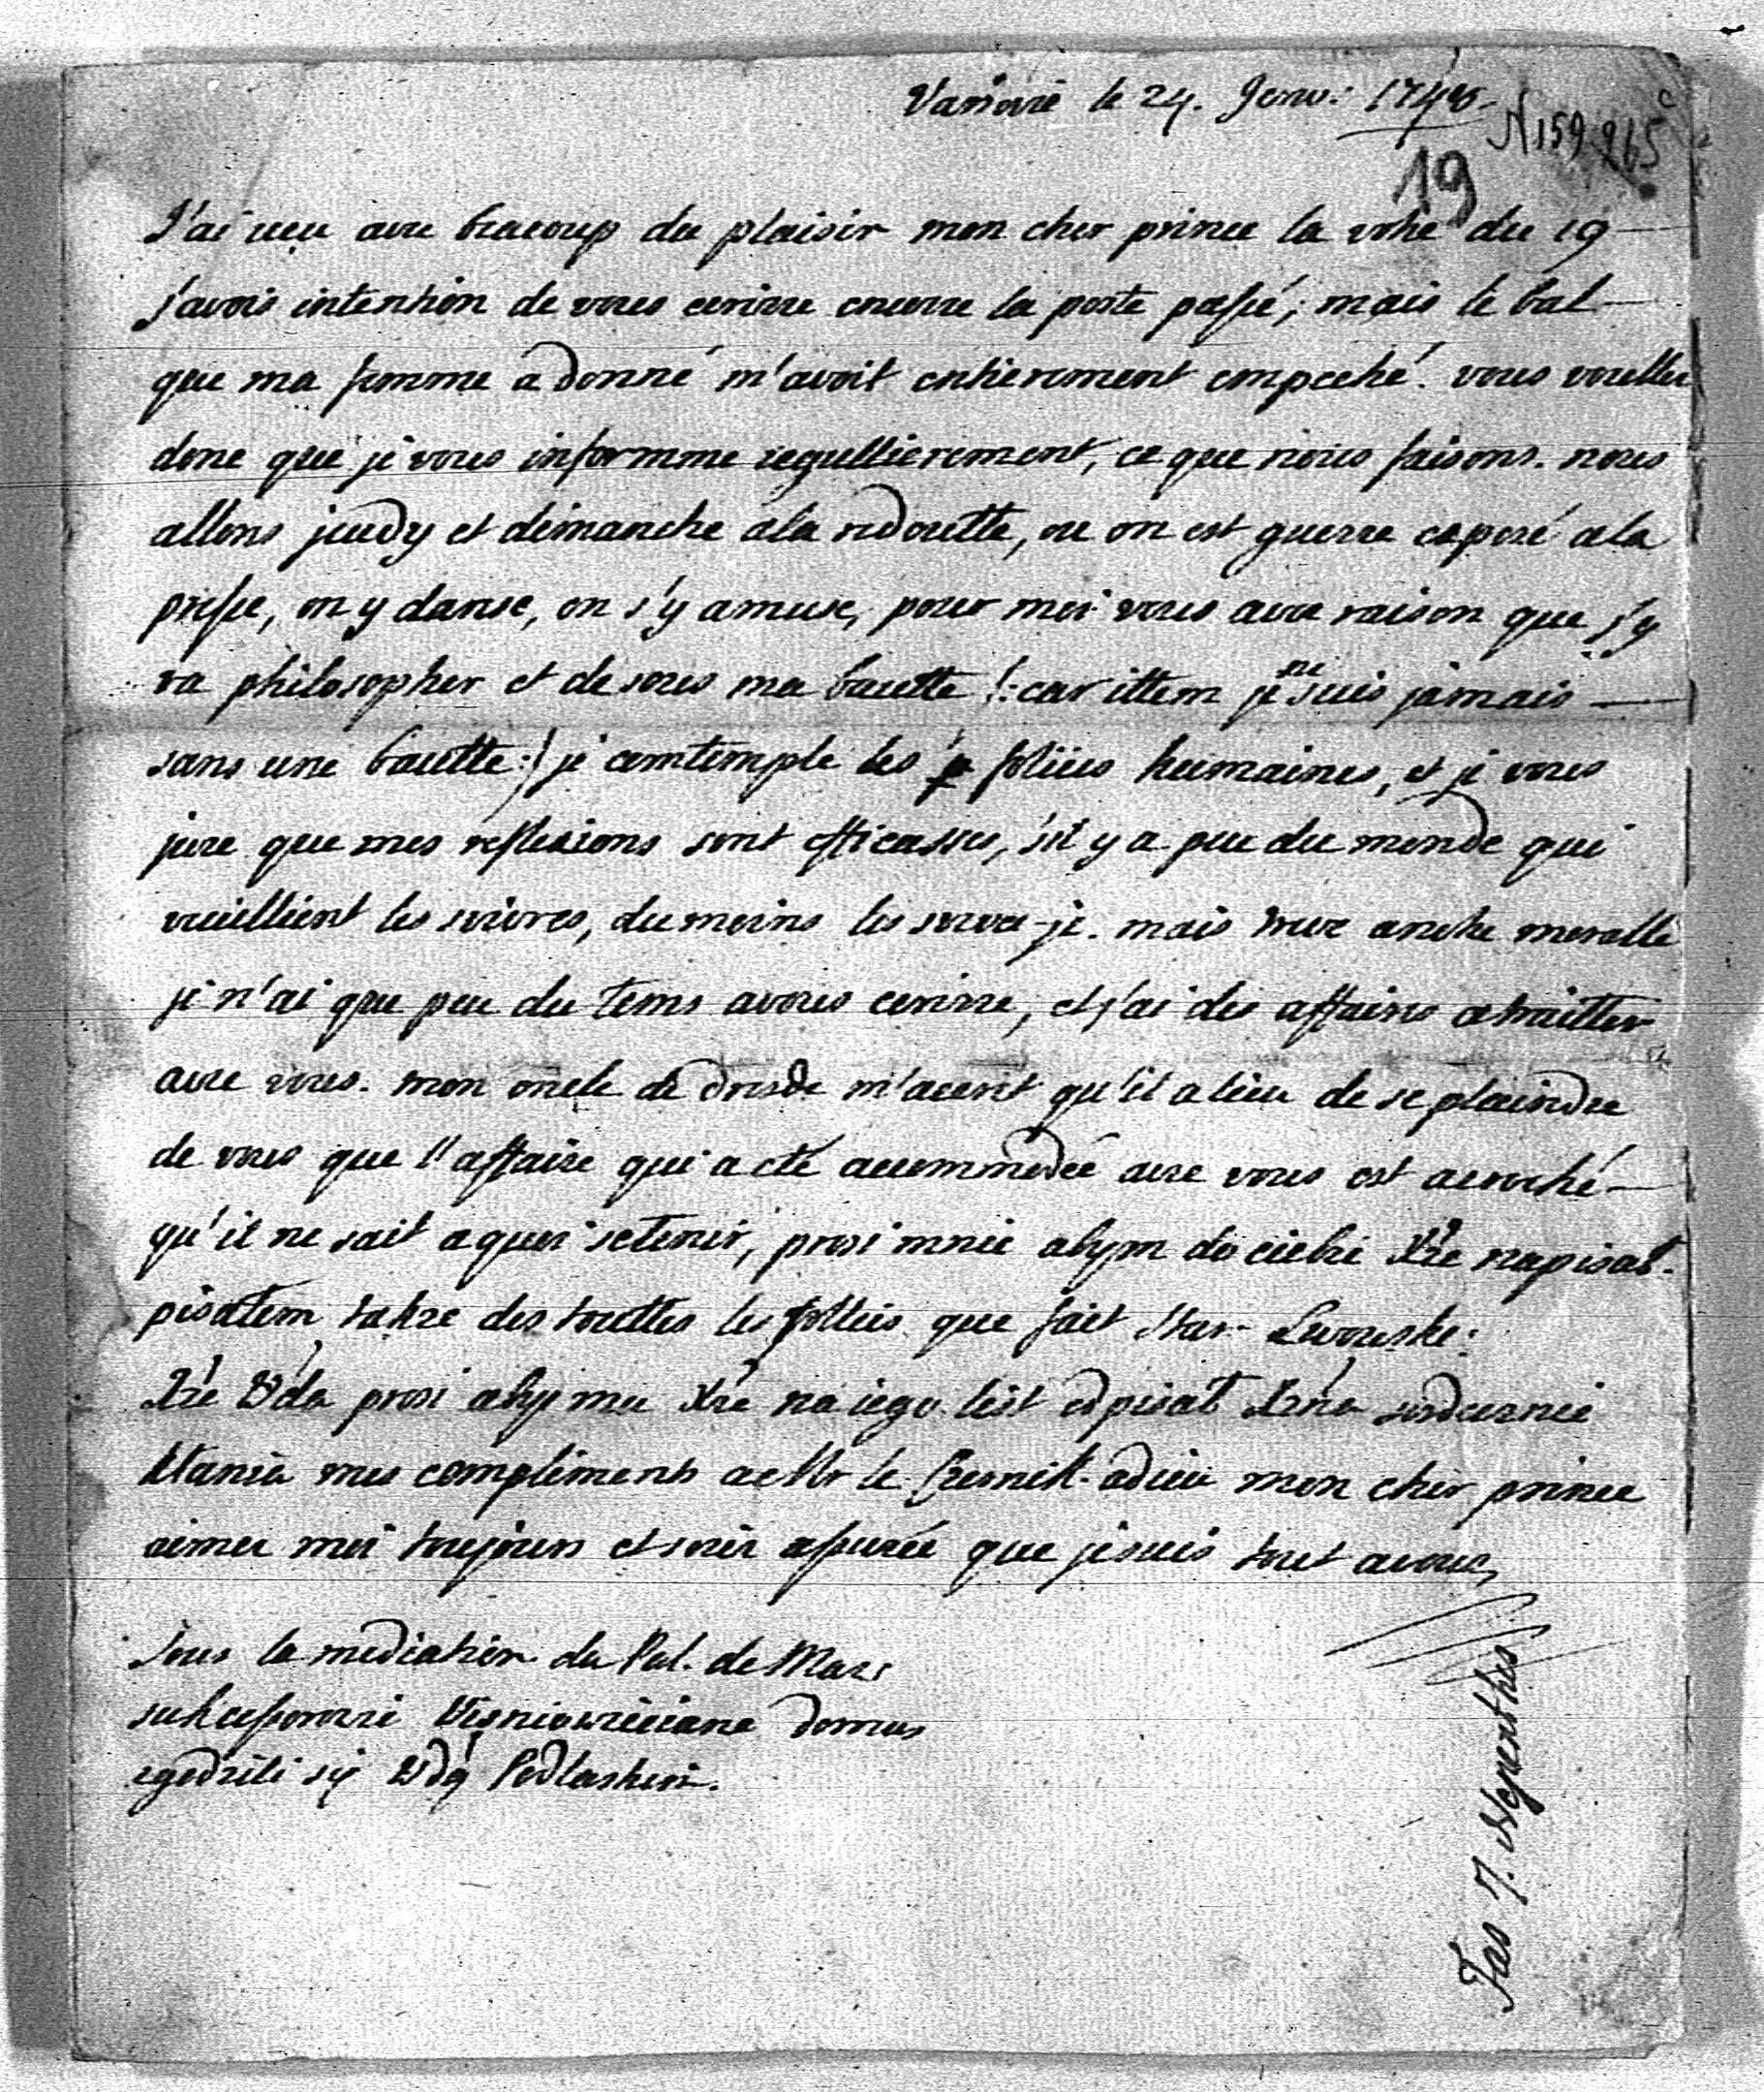 Varsovie le 24. Janv: 1748.
N 159 265
19
J'ai recu avec beacoup du plaisir mon cher prince la votre du 19
j'avois intention de vous ecrirre encorre la poste passé; mais le bal
que ma femme a donné m'avoit entierement empeché. vous voullez
donc que je vous informme regullierement, ce que nous faisons. nous
allons jeudy et dimanche a la redoutte, ou on est guerre exposé a la
presse, on y danse, on s'y amuse, pour moi vous avez raison que j'y
va philosopher et de sous ma bautte /: car ittem je ne suis jamais
sans une bautte :/ je comtemple les foliies humaines, et je vous
jure que mes reflexions sont efficasses, s'il y a peu du monde qui
vueillient les suivres, du moins les suive-je. mais treve a notre moralle
je n'ai que peu du tems a vous ecrirre, et j'ai des affaires a traitter
avec vous. mon oncle de dresde m'acerit qu'il a lieu de se plaindre
de vous que l'affaire qui a eté accommodée avec vous est acroché
qu'il ne sait a quoi se tenir, prosi mnie abym do ciebie napisal.
pisalem takze des touttes les follies que fait
prosi aby mu na iego list odpisal serdecznie
mes compliments a Mr le adieu mon cher prince
aimez moi toujours et soiez assurée que je suis tout a vous,
Sous la mediation du Pal. de Maz:
sukcessorowie Wisniowieciane domus
zgodzili się Wdą Podlaskim.
Fas 7. Nepenthes